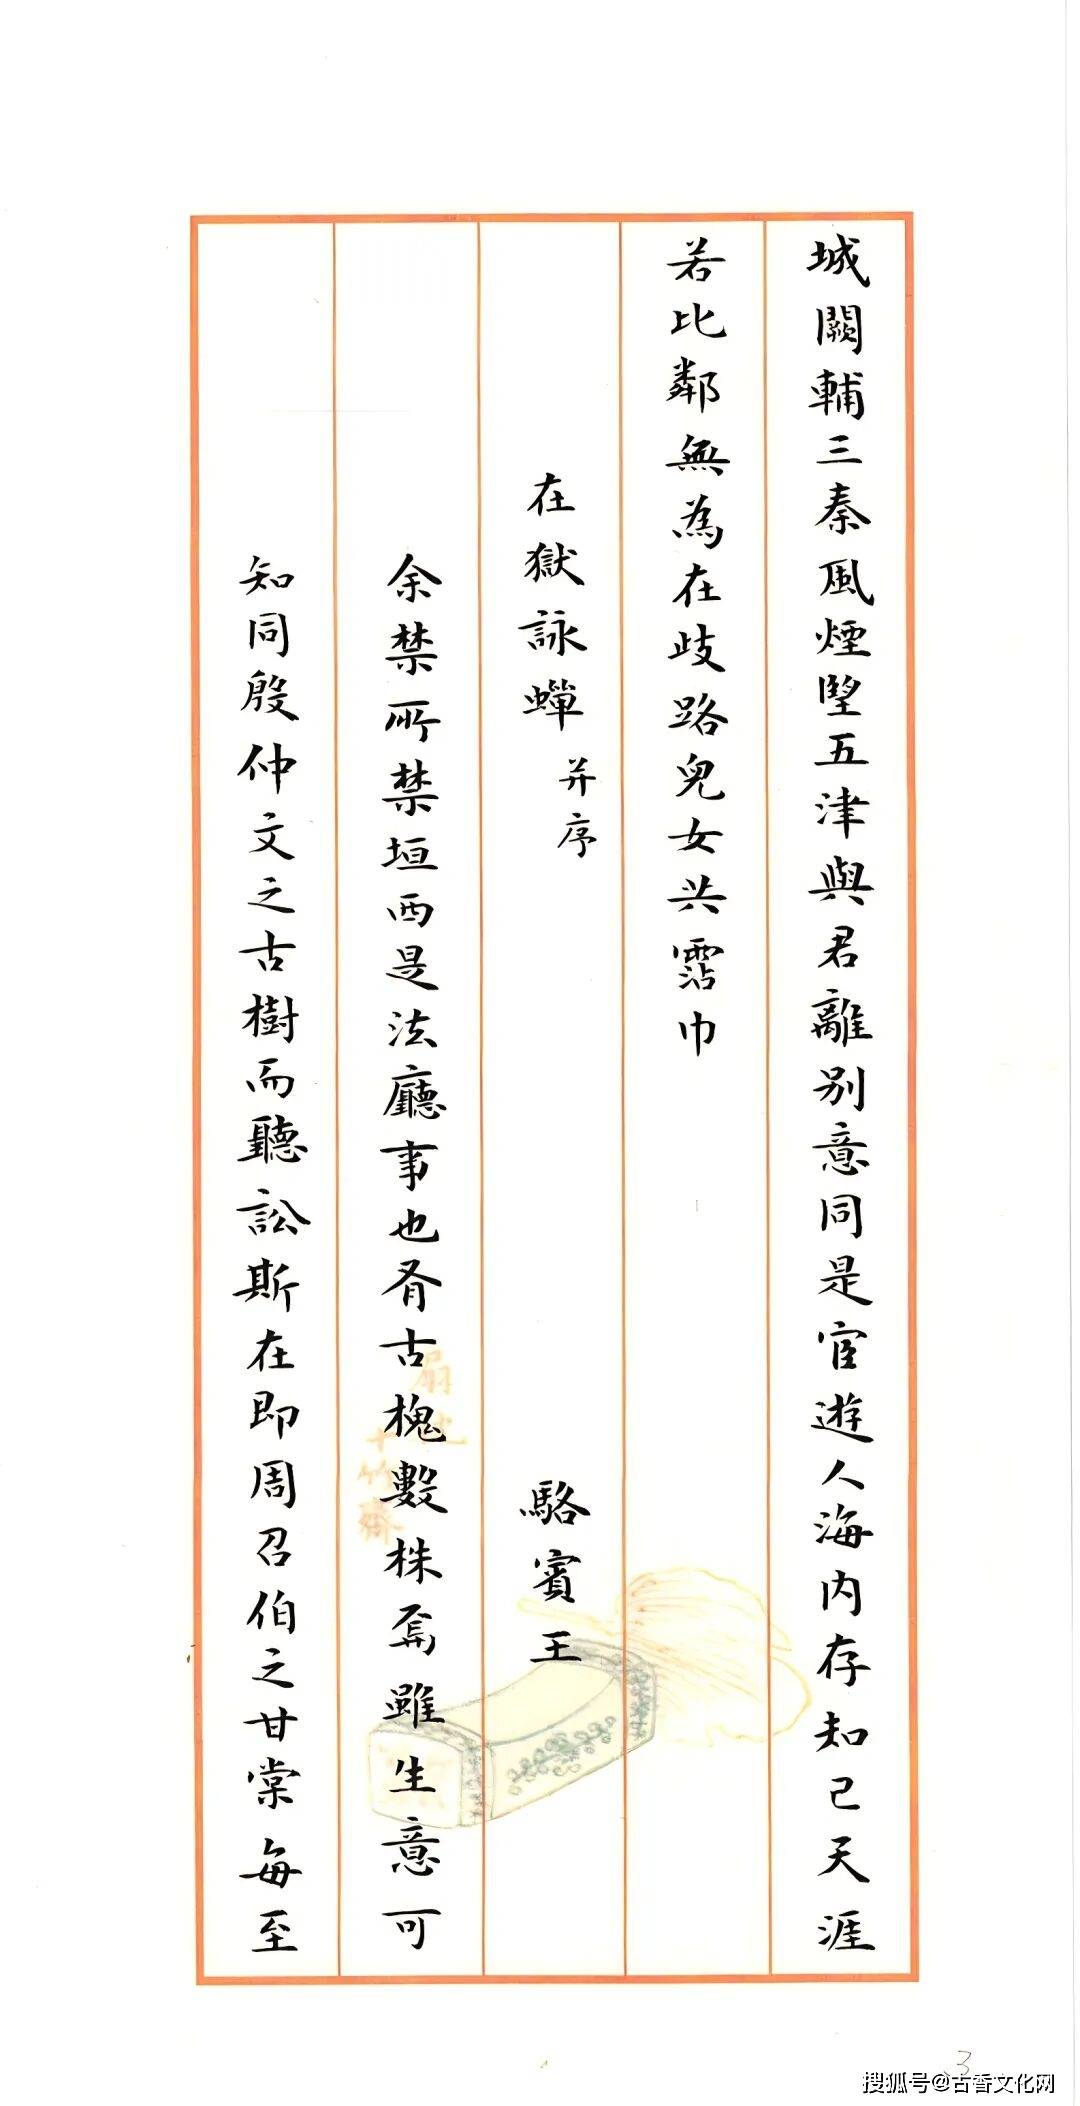 城闕輔三秦風煙望五津與君離別意同是宦遊人海內存知己天涯
若比鄰無為在歧路兒女共霑巾
在獄詠蟬并序 駱賓王
余禁所禁垣西是法廳事也有古槐數株焉雖生意可
知同殷仲文之古樹而聽訟斯在即周召伯之甘棠每至
扇 十竹齋
3
搜狐号@古香文化网